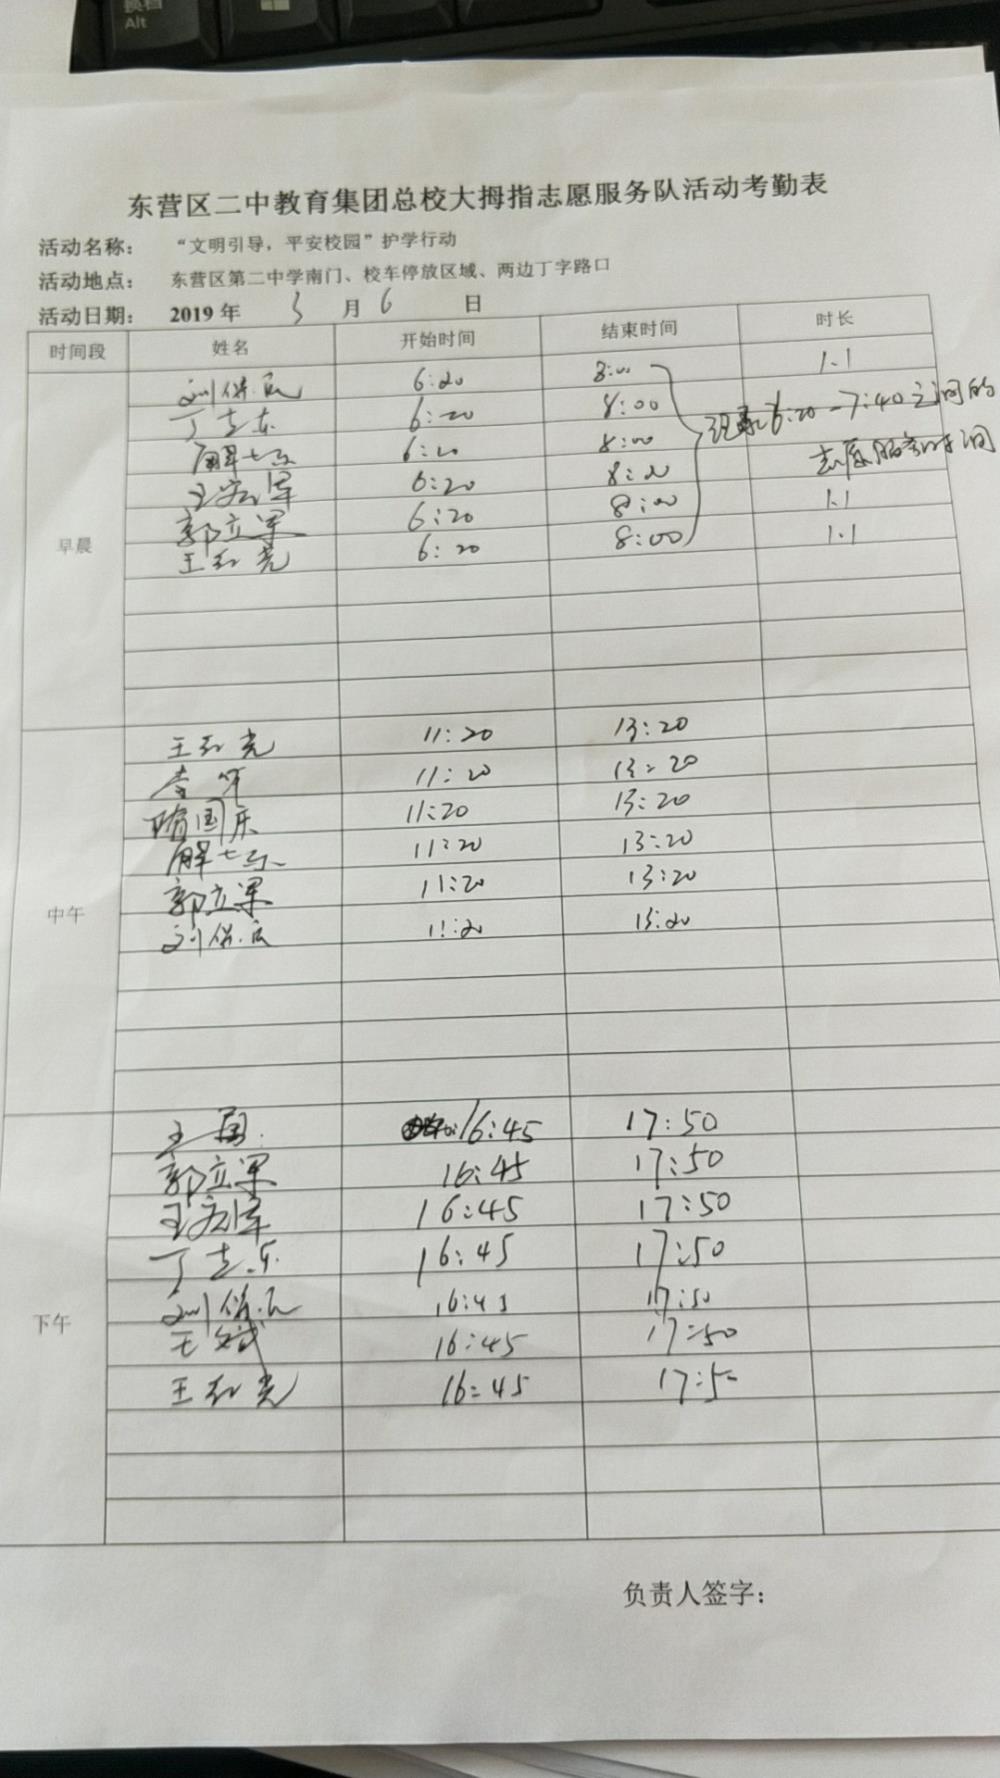 换档
Alt
东营区二中教育集团总校大拇指志愿服务队活动考勤表
活动名称： “文明引导，平安校园”护学行动
活动地点： 东营区第二中学南门、校车停放区域、两边丁字路口
活动日期： 2019 年 3 月 6 日
时间段 姓名 开始时间 结束时间 时长
早晨
刘 6:20 8:00 1.1
丁志东 6:20 8:00 6:20-7:40之间的
解 6:20 8:00 志愿服务时间
王 6:20 8:00
郭立军 6:20 8:00 1.1
王 6:20 8:00 1.1
中午
王 11:20 13:20
李 11:20 13:20
国庆 11:20 13:20
解 11:20 13:20
郭立军 11:20 13:20
刘 11:20 13:20
下午
王 16:45 17:50
郭立军 16:45 17:50
王 16:45 17:50
丁志东 16:45 17:50
刘 16:45 17:50
王斌 16:45 17:50
王 16:45 17:50
负责人签字：